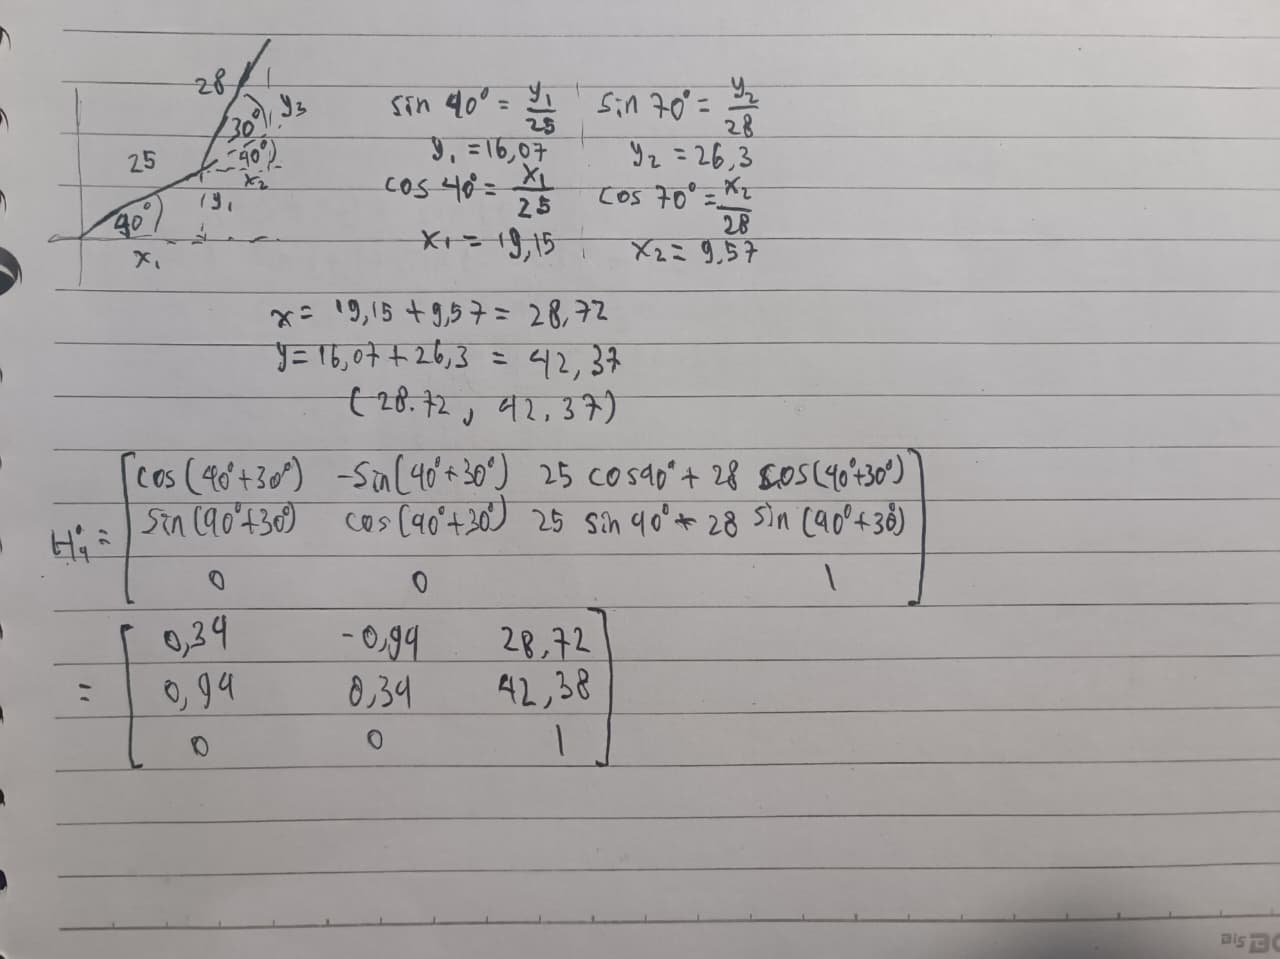 28
y3
30°
40°
25
x2
y1
40°
x1
sin 40° = y1/25
y1 = 16,07
cos 40° = x1/25
x1 = 19,15
sin 70° = y2/28
y2 = 26,3
cos 70° = x2/28
x2 = 9,57
x = 19,15 + 9,57 = 28,72
y = 16,07 + 26,3 = 42,37
(28.72, 42,37)
cos(40°+30°) -sin(40°+30°) 25 cos40° + 28 cos(40°+30°)
H°4 = sin(40°+30°) cos(40°+30°) 25 sin 40° + 28 sin (40°+30°)
0 0 1
0,34 -0,94 28,72
= 0,94 0,34 42,38
0 0 1